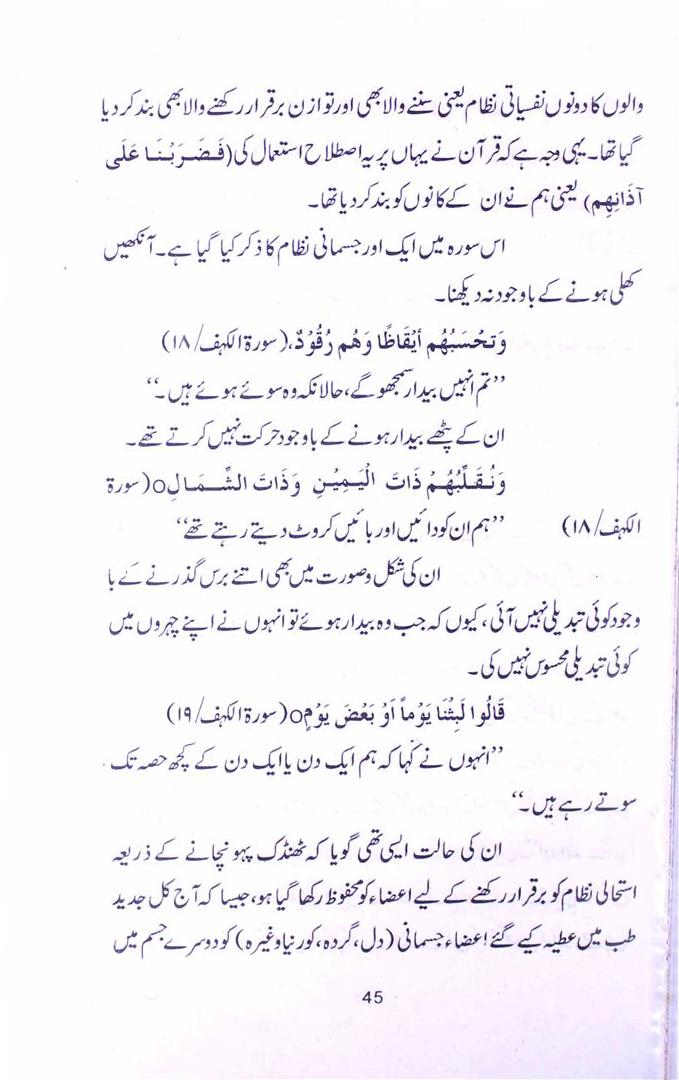 والوں کا دونوں نفسیاتی نظام یعنی سننے والا بھی اور توازن برقرار رکھنے والا بھی بند کر دیا
گیا تھا۔ یہی وجہ ہے کہ قرآن نے یہاں پر یہ اصطلاح استعمال کی (فَضَرَبْنَا عَلَی
آذَانِهِم) یعنی ہم نے ان کے کانوں کو بند کر دیا تھا۔
اس سورہ میں ایک اور جسمانی نظام کا ذکر کیا گیا ہے۔ آنکھیں
کھلی ہونے کے باوجود نہ دیکھنا۔
وَتَحْسَبُهُم أَيْقَاظًا وَهُم رُقُوْدٌ،(سورۃ الکہف/۱۸)
’’تم انہیں بیدار سمجھو گے، حالانکہ وہ سوئے ہوئے ہیں۔‘‘
ان کے پٹھے بیدار ہونے کے باوجود حرکت نہیں کرتے تھے۔
وَنُقَلِّبُهُمْ ذَاتَ الْيَمِيْنِ وَذَاتَ الشِّمَالِ0(سورۃ
الکہف/۱۸) ’’ہم ان کو دائیں اور بائیں کروٹ دیتے رہتے تھے‘‘
ان کی شکل وصورت میں بھی اتنے برس گذرنے کے با
وجود کوئی تبدیلی نہیں آئی، کیوں کہ جب وہ بیدار ہوئے تو انہوں نے اپنے چہروں میں
کوئی تبدیلی محسوس نہیں کی۔
قَالُوا لَبِثْنَا يَوْماً اَوْ بَعْضَ يَوْمٍ0(سورۃ الکہف/۱۹)
’’انہوں نے کہا کہ ہم ایک دن یا ایک دن کے کچھ حصہ تک
سوتے رہے ہیں۔‘‘
ان کی حالت ایسی تھی گویا کہ ٹھنڈک پہونچانے کے ذریعہ
استحالی نظام کو برقرار رکھنے کے لیے اعضاء کو محفوظ رکھا گیا ہو، جیسا کہ آج کل جدید
طب میں عطیہ کیے گئے اعضاء جسمانی (دل، گردہ، کورنیا وغیرہ) کو دوسرے جسم میں
45